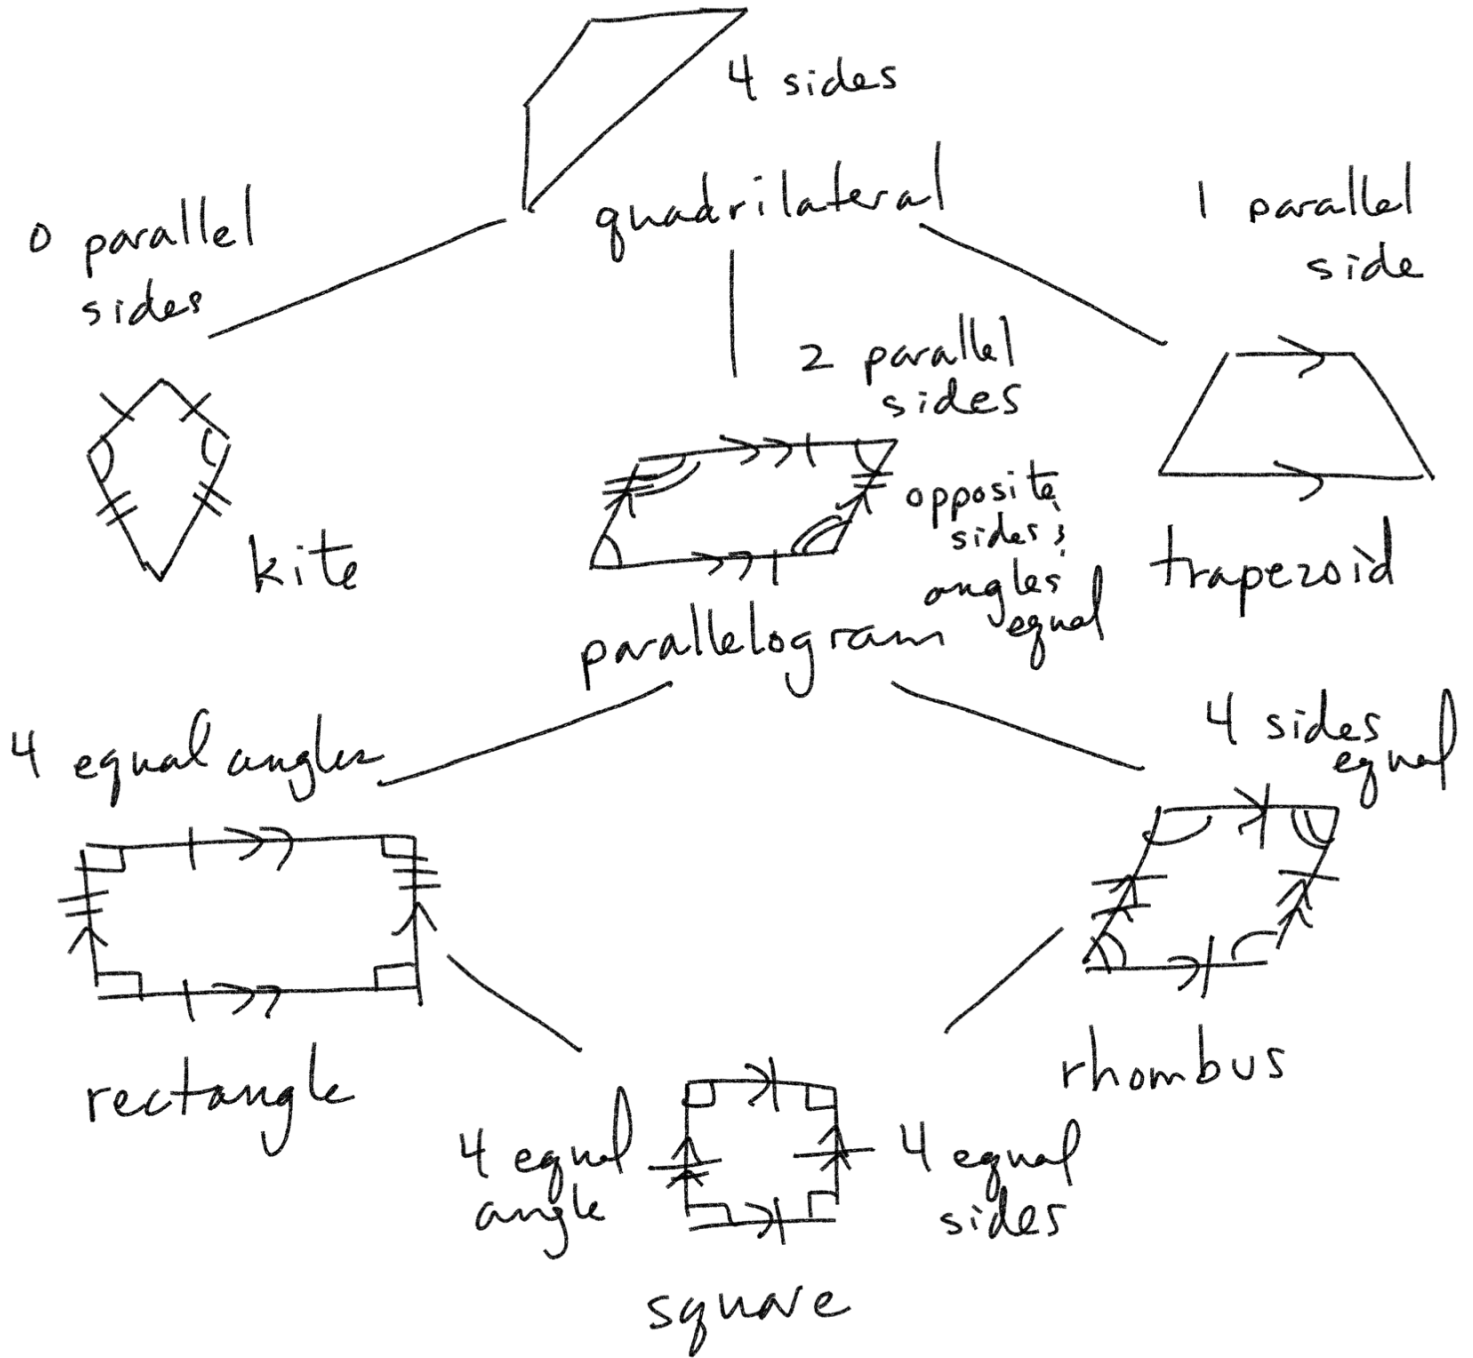 4 sides
quadrilateral
0 parallel
sides
1 parallel
side
2 parallel
sides
opposite
sides &
angles
equal
kite
parallelogram
trapezoid
4 equal angles
4 sides
equal
rectangle
rhombus
4 equal
angle
4 equal
sides
square